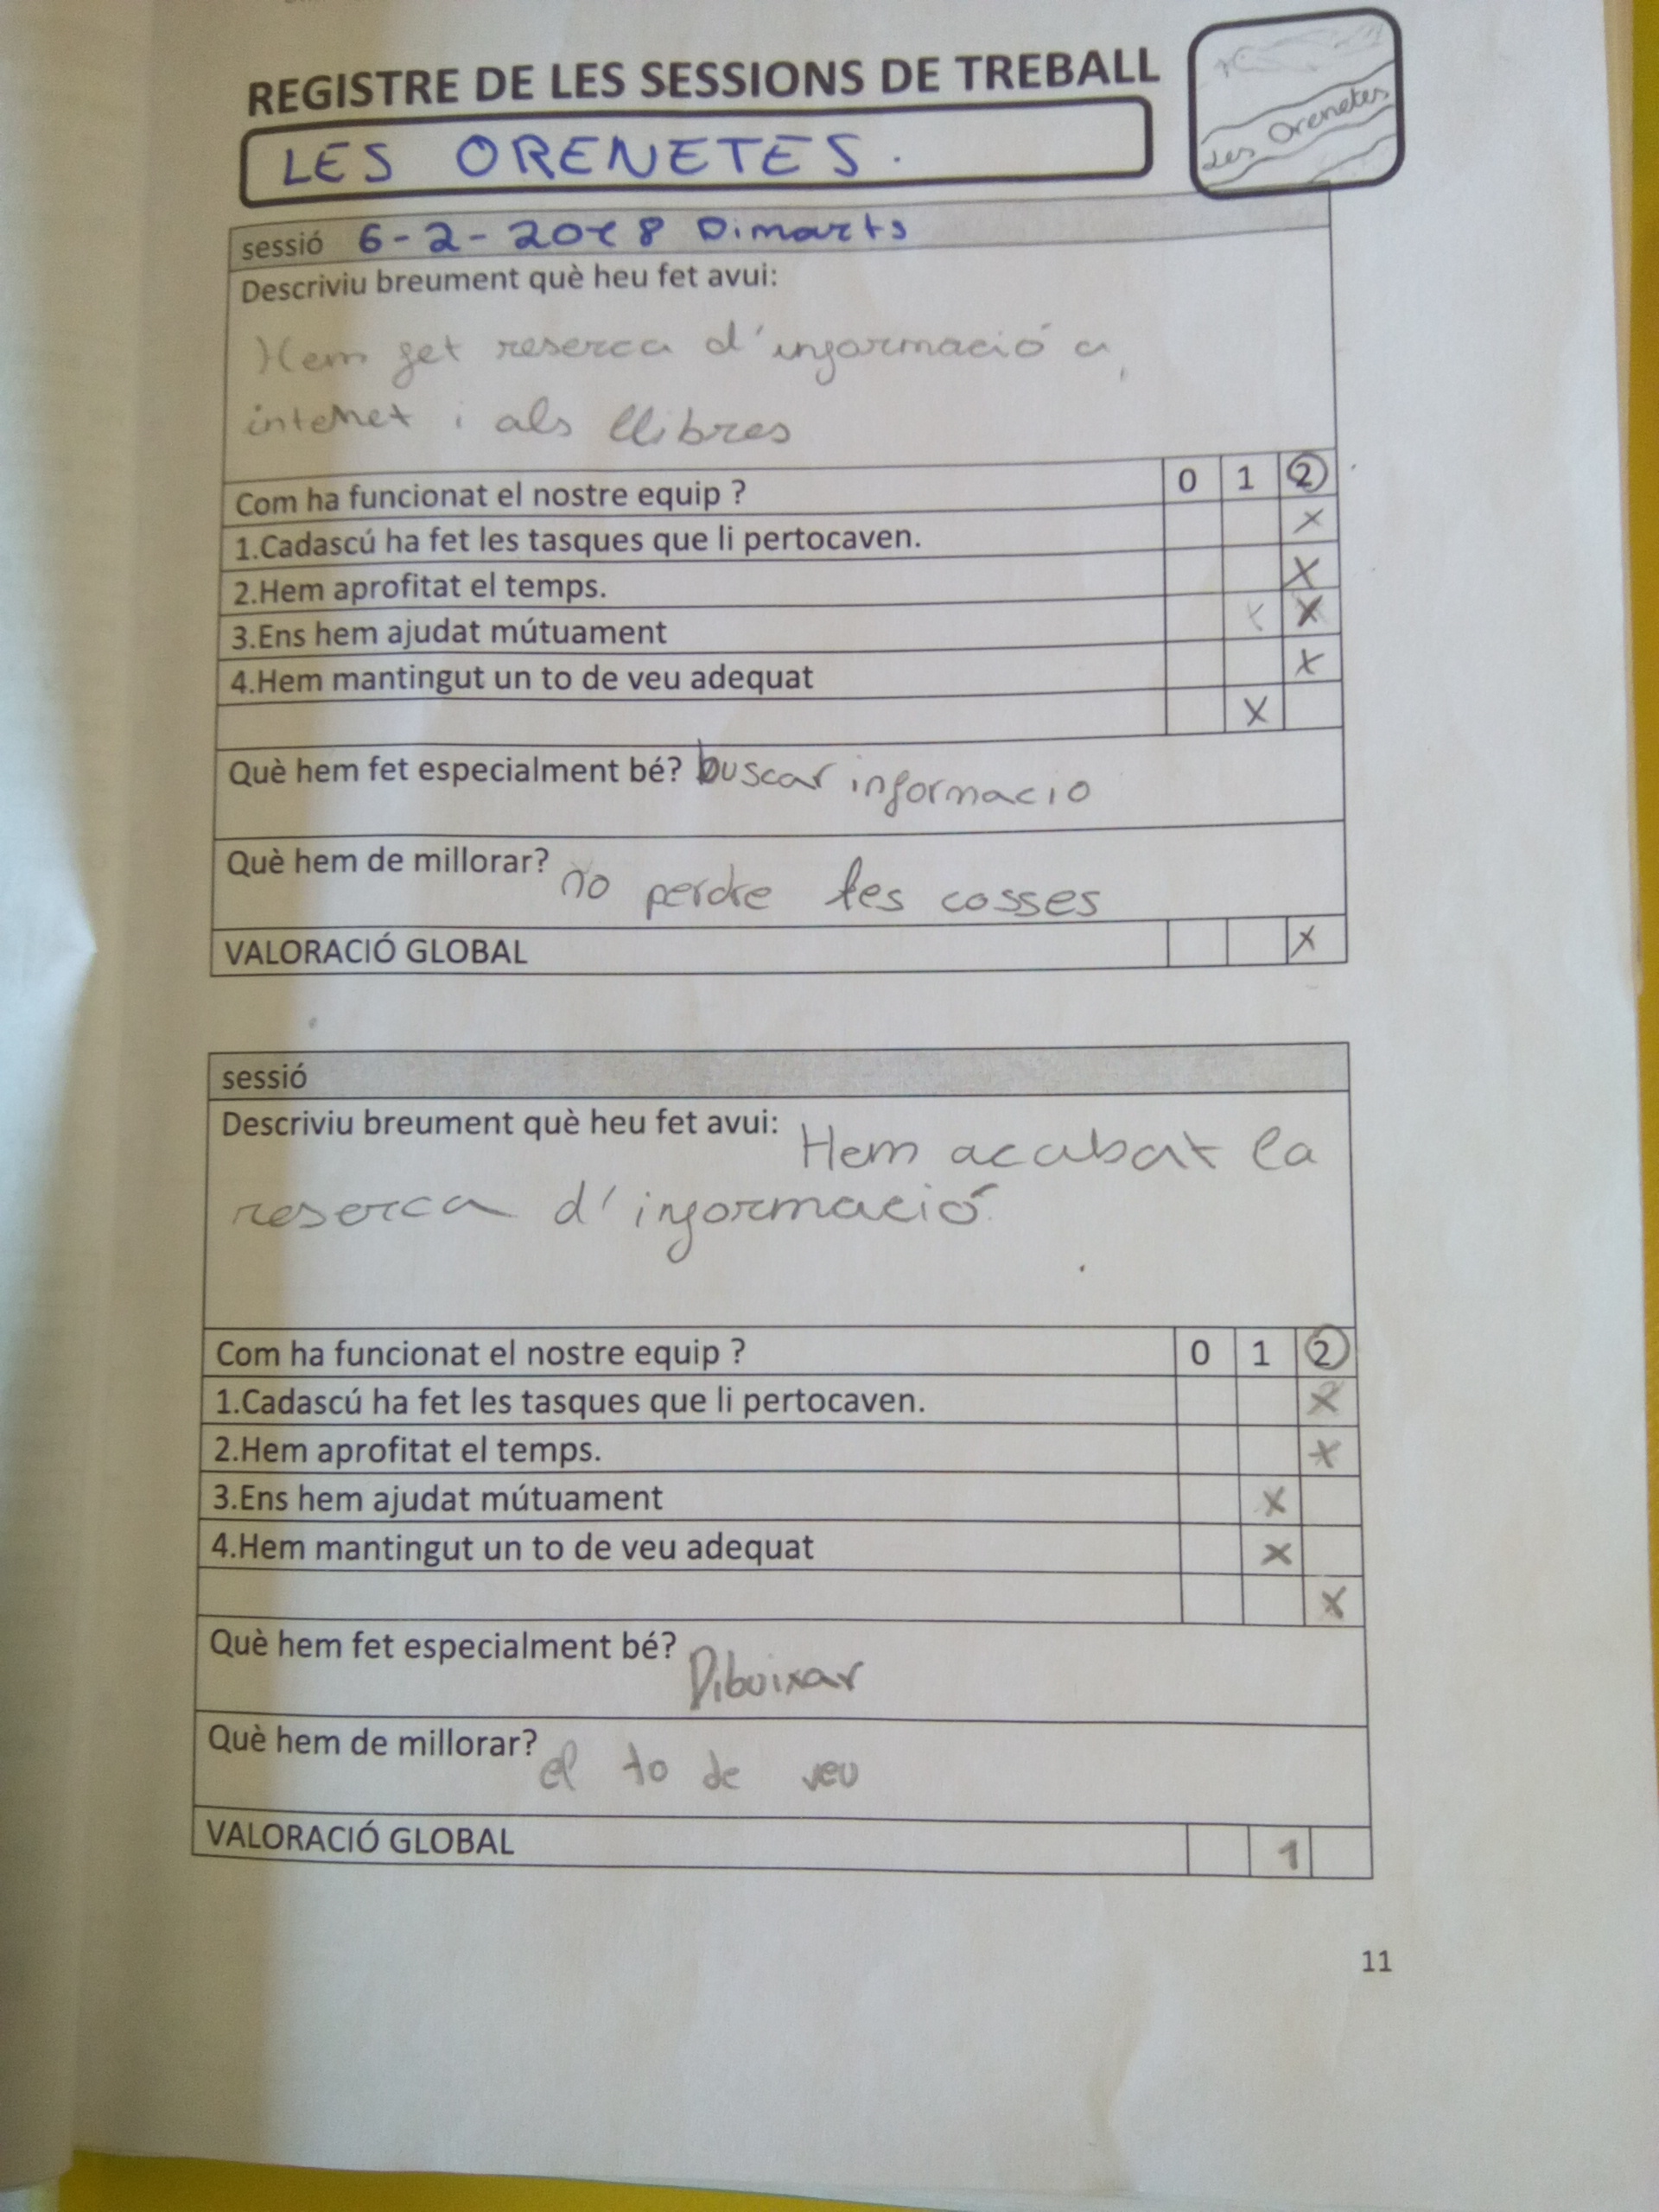 REGISTRE DE LES SESSIONS DE TREBALL
LES ORENETES.
Les Orenetes
sessió 6-2-2018 Dimarts
Descriviu breument què heu fet avui:
Hem fet reserca d'informació a
internet i als llibres
Com ha funcionat el nostre equip ? 0 1 2
1.Cadascú ha fet les tasques que li pertocaven. x
2.Hem aprofitat el temps. x
3.Ens hem ajudat mútuament x x
4.Hem mantingut un to de veu adequat x
x
Què hem fet especialment bé? buscar informacio
Què hem de millorar? no perdre les cosses
VALORACIÓ GLOBAL x
sessió
Descriviu breument què heu fet avui: Hem acabat la
reserca d'informació
Com ha funcionat el nostre equip ? 0 1 2
1.Cadascú ha fet les tasques que li pertocaven. x
2.Hem aprofitat el temps. x
3.Ens hem ajudat mútuament x
4.Hem mantingut un to de veu adequat x
x
Què hem fet especialment bé? Dibuixar
Què hem de millorar? el to de veu
VALORACIÓ GLOBAL 1
11